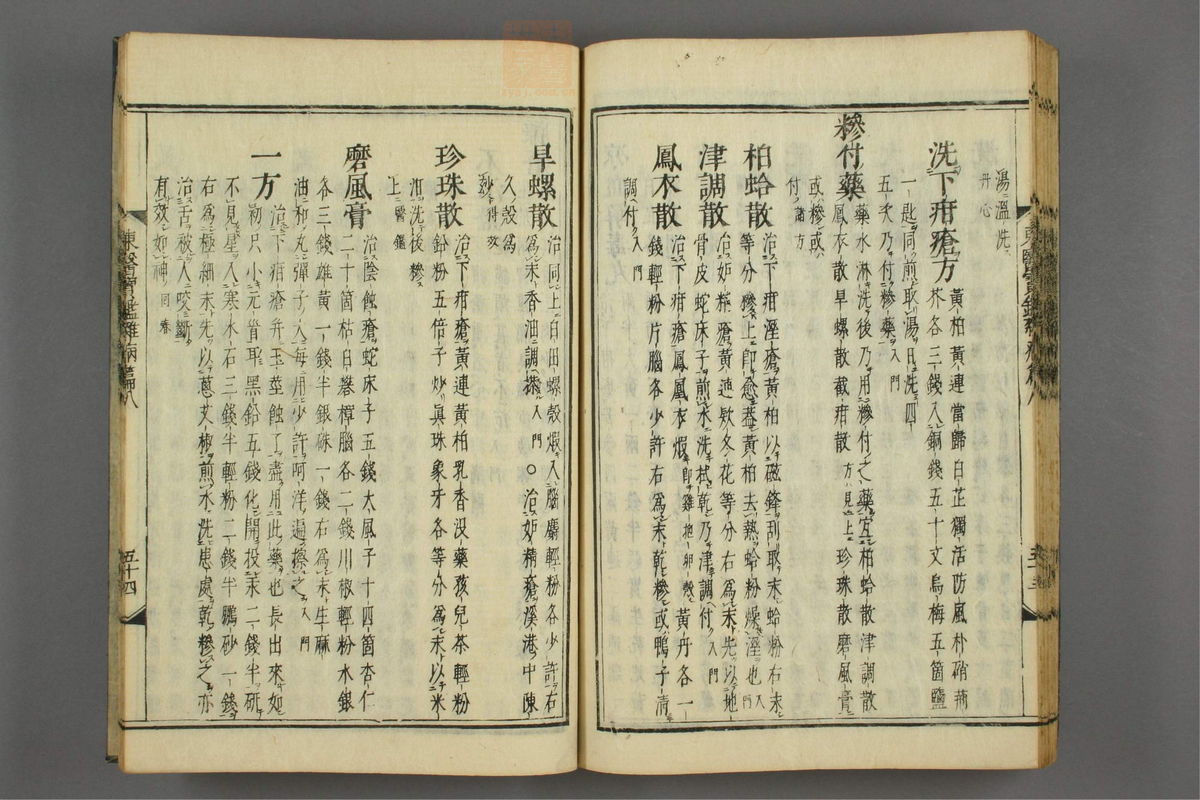 湯溫洗
丹心
洗下疳瘡方 黃柏黃連當歸白芷獨活防風朴硝荊
芥各三錢入銅錢五十文烏梅五箇鹽
一匙同煎取湯日洗四
五次乃付糝藥 入門
糝付藥 藥水淋洗後乃用糝付之藥宜柏蛤散津調散
鳳衣散旱螺散截疳散 方見上 珍珠散磨風膏
或糝或
付 諸方
柏蛤散 治下疳溼瘡黃柏以磁鋒刮取末蛤粉右末
等分糝上卽愈蓋黃柏去熱蛤粉燥溼也 入門
津調散 治妬精瘡黃連欵冬花等分右爲末先以地
骨皮蛇床子煎水洗拭乾乃津調付 入門
鳳衣散 治下疳瘡鳳凰衣煆 卽雞抱卵殼 黃丹各一
錢輕粉片腦各少許右爲末乾糝或鴨子清
調付 入門
旱螺散 治同上白田螺殼煆入腦麝輕粉各少許右
爲末香油調搽 入門 ○治妬精瘡溪港中陳
久殼爲
妙 得效
珍珠散 治下疳瘡黃連黃柏乳香沒藥孩兒茶輕粉
鉛粉五倍子炒眞珠象牙各等分爲末以米
泔洗後糝
上 醫鑑
磨風膏 治陰蝕瘡蛇床子五錢大風子十四箇杏仁
二十箇枯白礬樟腦各二錢川椒輕粉水銀
各三錢雄黃一錢半銀硃一錢右爲末生麻
油和丸彈子大每用少許呵洋遍擦之 入門
一方 治下疳瘡幷玉莖蝕了盡用此藥也長出來如
初只小元首耳黑鉛五錢化開投汞二錢半研
不見星入寒水石三錢半輕粉二錢半鵬砂一錢
右爲極細末先以葱艾椒煎水洗患處乾糝之亦
治舌被人咬斷
有效如神 回春
東醫寶鑑雜病篇八
五十四